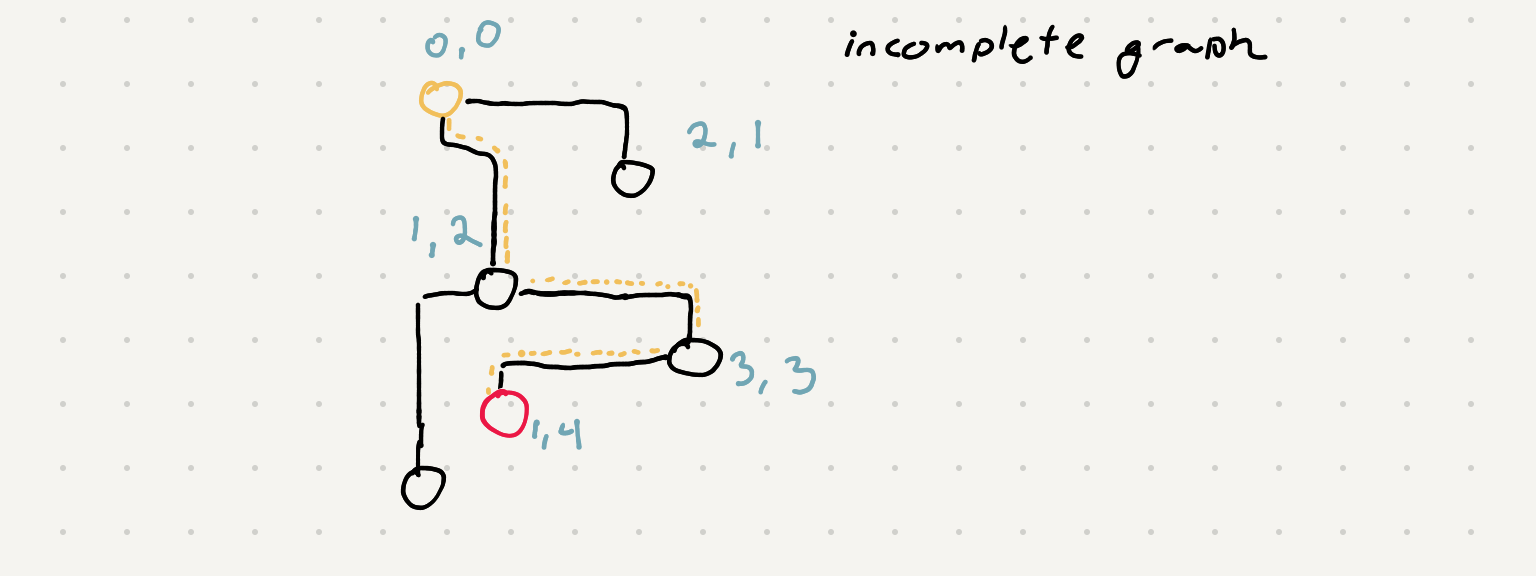 0,0
incomplete graph
2,1
1,2
3,3
1,4